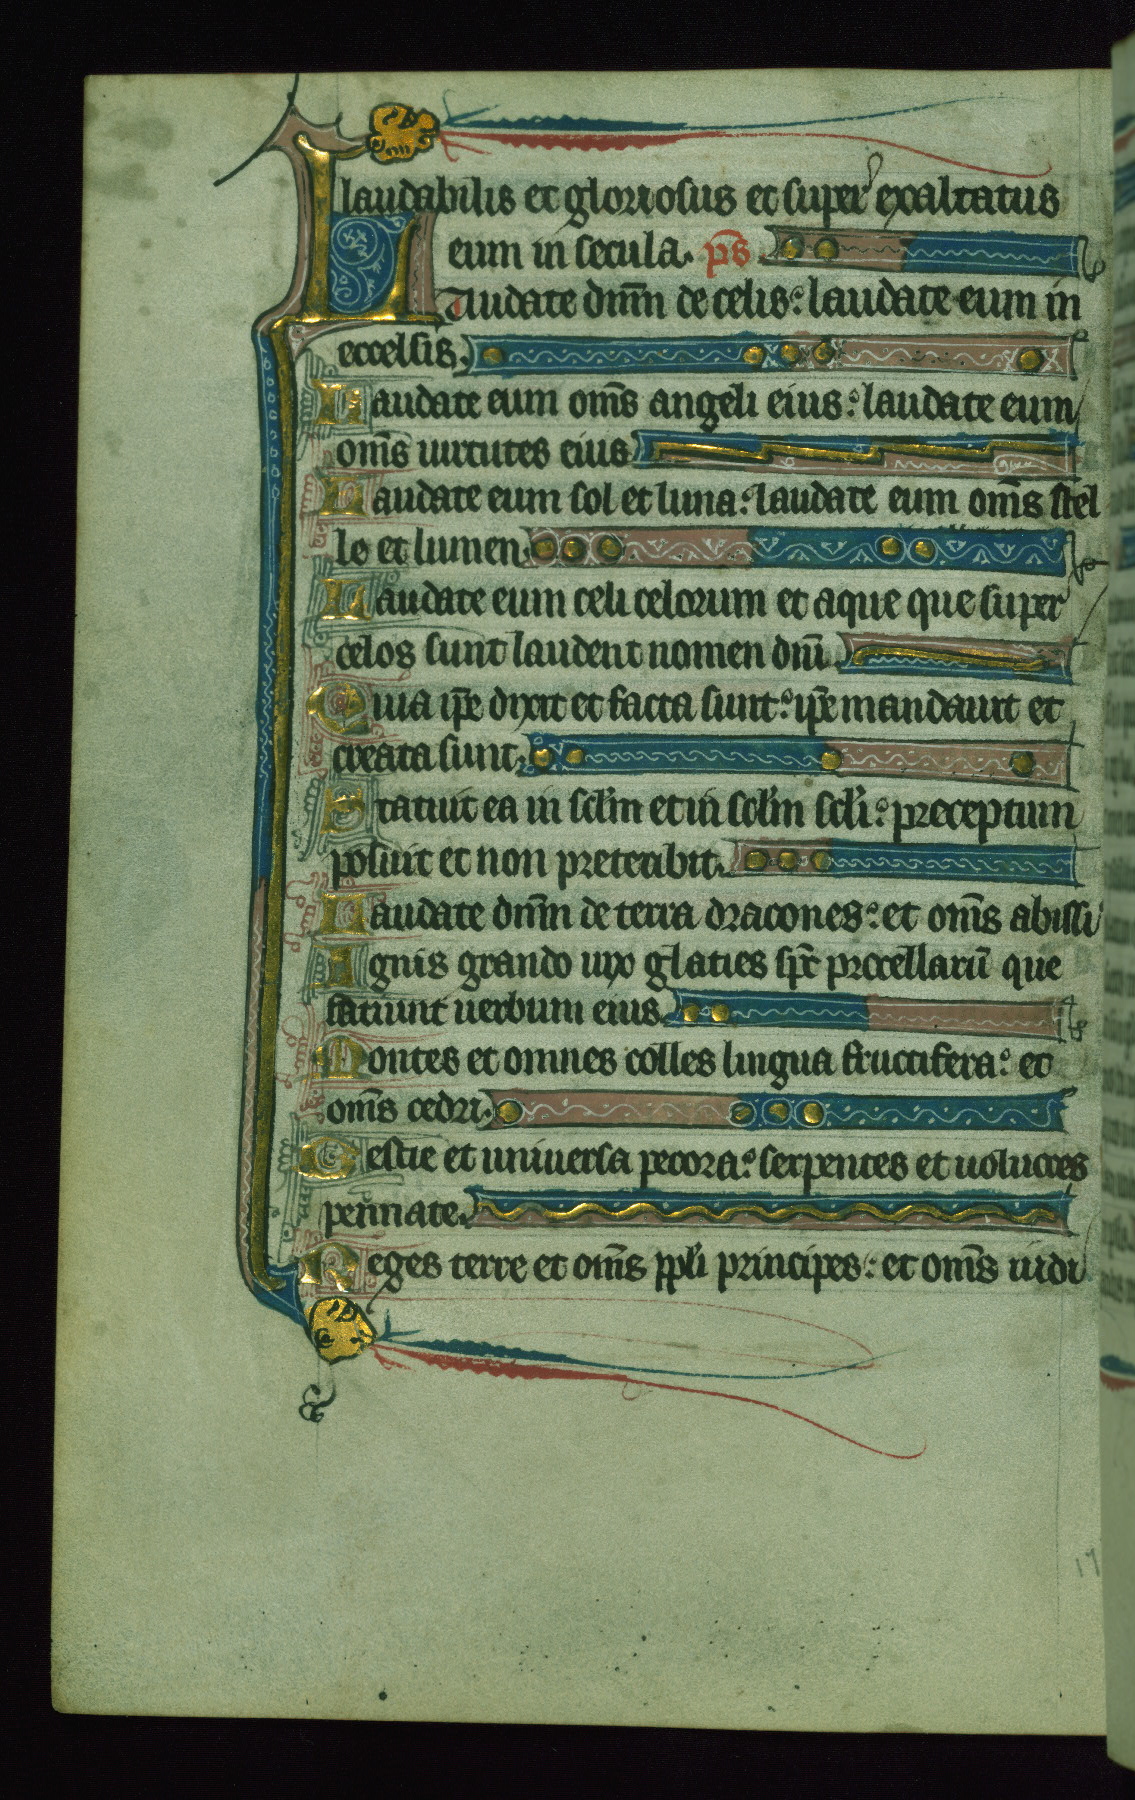 laudabilis et gloriosus et super exaltatus
eum in secula. ps̄
Laudate dn̄m de celis: laudate eum in
excelsis.
Laudate eum om̄s angeli eius: laudate eum
om̄s uirtutes eius
Laudate eum sol et luna: laudate eum om̄s stel
le et lumen.
Laudate eum celi celorum et aque que super
celos sunt laudent nomen dn̄i.
Quia ip̄e dixit et facta sunt: ip̄e mandauit et
creata sunt.
Statuit ea in sc̄lm et in sc̄lm sc̄li: preceptum
posuit et non preteribit.
Laudate dn̄m de terra dracones: et om̄s abissi
Ignis grando nix glaties sp̄c procellarū que
fatiunt uerbum eius.
Montes et omnes colles lingua fructifera: et
om̄s cedri.
Bestie et uniuersa pecora: serpentes et uolucres
pennate.
Reges terre et om̄s ppl̄i principes: et om̄s iudi